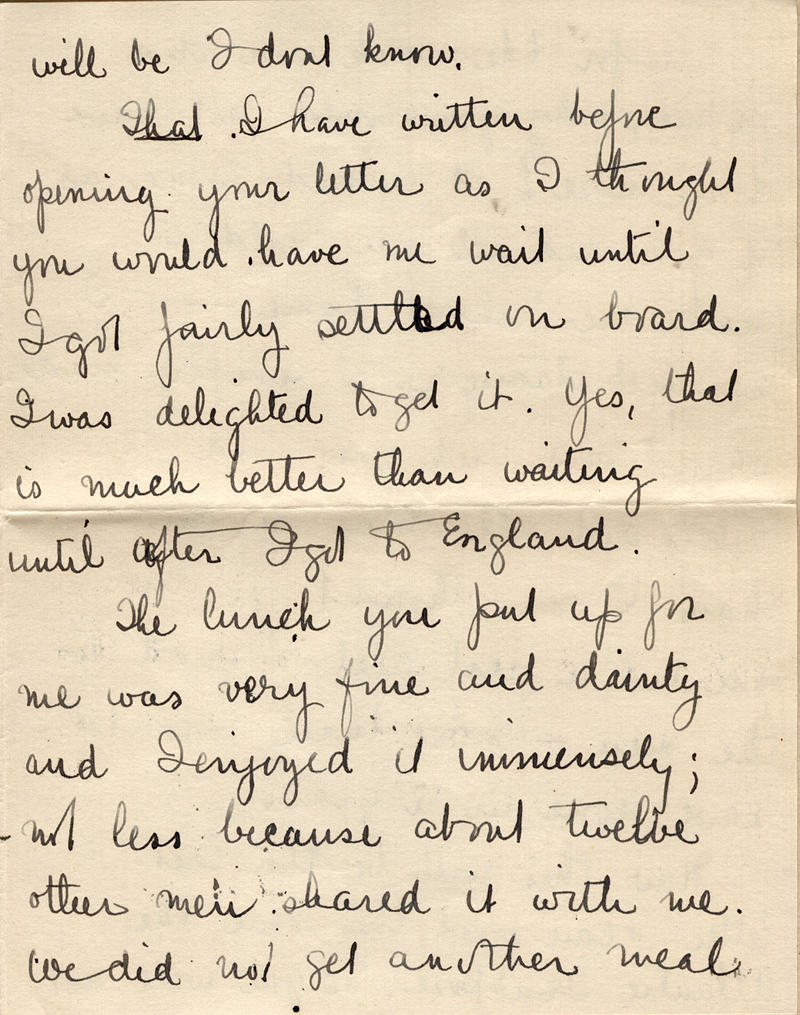 will be I dont know.
That I have written before
opening your letter as I thought
you would have me wait until
I got fairly settled on board.
I was delighted to get it. Yes, that
is much better than waiting
until after I got to England.
The lunch you put up for
me was very fine and dainty
and I enjoyed it immensely;
not less because about twelve
other men shared it with me.
We did not get another meal